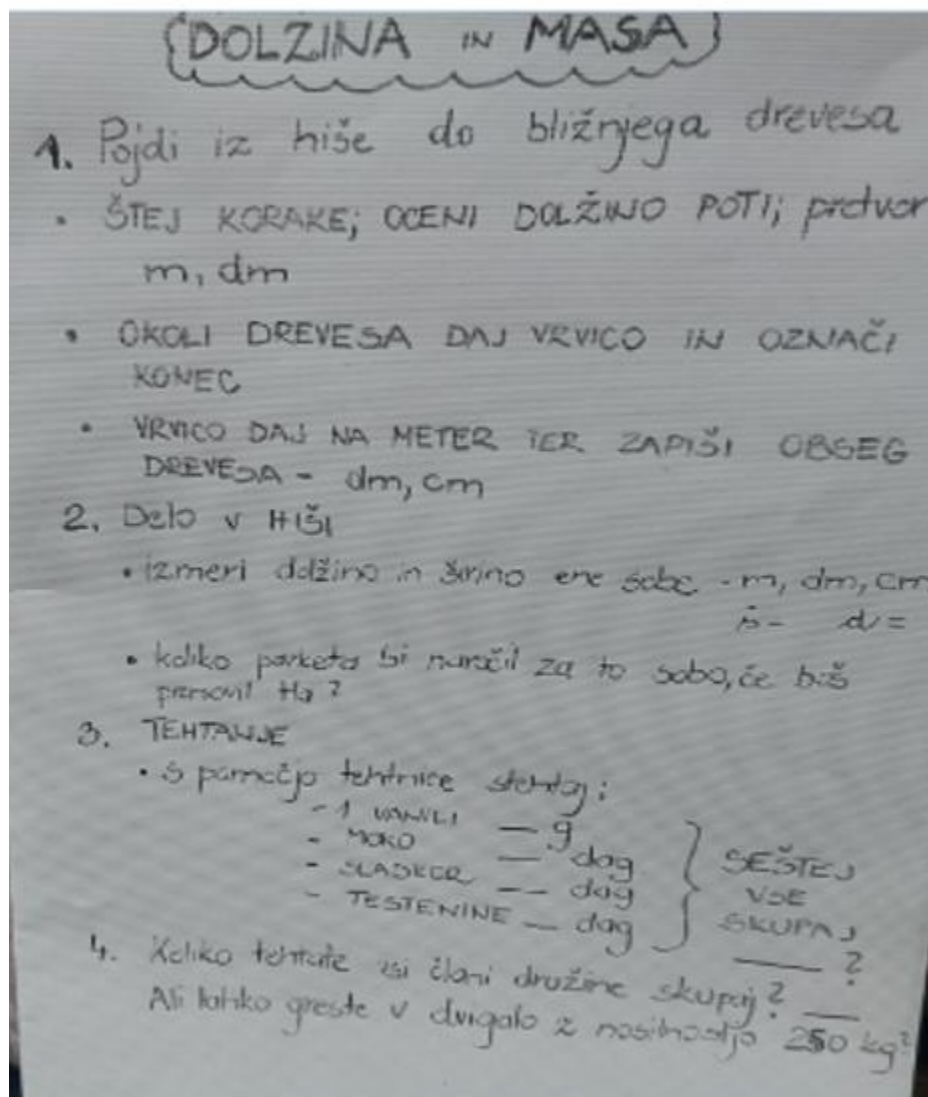 DOLZINA IN MASA
1. Pojdi iz hiše do bližnjega drevesa
• ŠTEJ KORAKE; OCENI DOLŽINO POTI; pretvor
m, dm
• OKOLI DREVESA DAJ VRVICO IN OZNAČI
KONEC
• VRVICO DAJ NA METER TER ZAPIŠI OBSEG
DREVESA - dm, cm
2. Delo v HIŠI
• izmeri dolžino in širino ene sobe - m, dm, cm
š- d=
• koliko parketa bi naročil za to sobo, če biš
3. TEHTANJE
• s pomočjo tehtnice stehtaj:
- 1 VANILI — g
- MOKO — dag
- SLADKOR — dag
- TESTENINE — dag
SEŠTEJ
VSE
SKUPAJ
— ?
4. Koliko tehtate vsi člani družine skupaj? —
Ali lahko greste v dvigalo z nosilnostjo 250 kg?